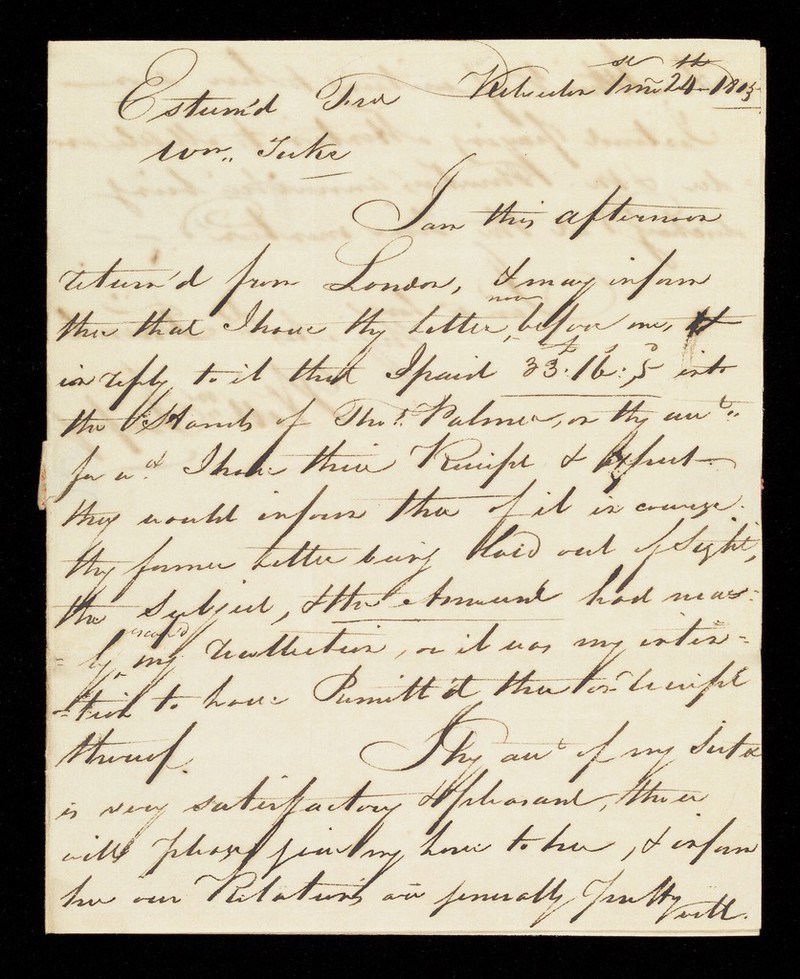 Esteem'd Frd Rochester 1st mo 24th 1805
Wm,, Tuke
I am this afternoon
return'd from London, & may inform
thee that I have thy letter, now before me, &
in reply to it that I paid £33. 16s: 5d into
the Hands of Thos. Palmer, on thy acct,,
for wch I have their Receipt & expect
they would inform thee of it in course.
thy former letter being laid out of Sight,
the Subject, & the Amount had near=
=ly escaped my recollection, or it was my inten=
=tion to have Remitt'd thee on receipt
thereof. Thy acct of my Sister
is very satisfactory & pleasant, thou
will please give my love to her, & inform
her our Relations are generally pretty
well.